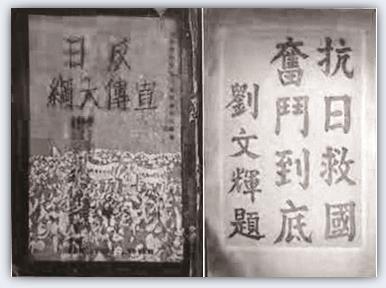 反日
宣傳大綱
抗日救國
奮鬥到底
劉文輝題